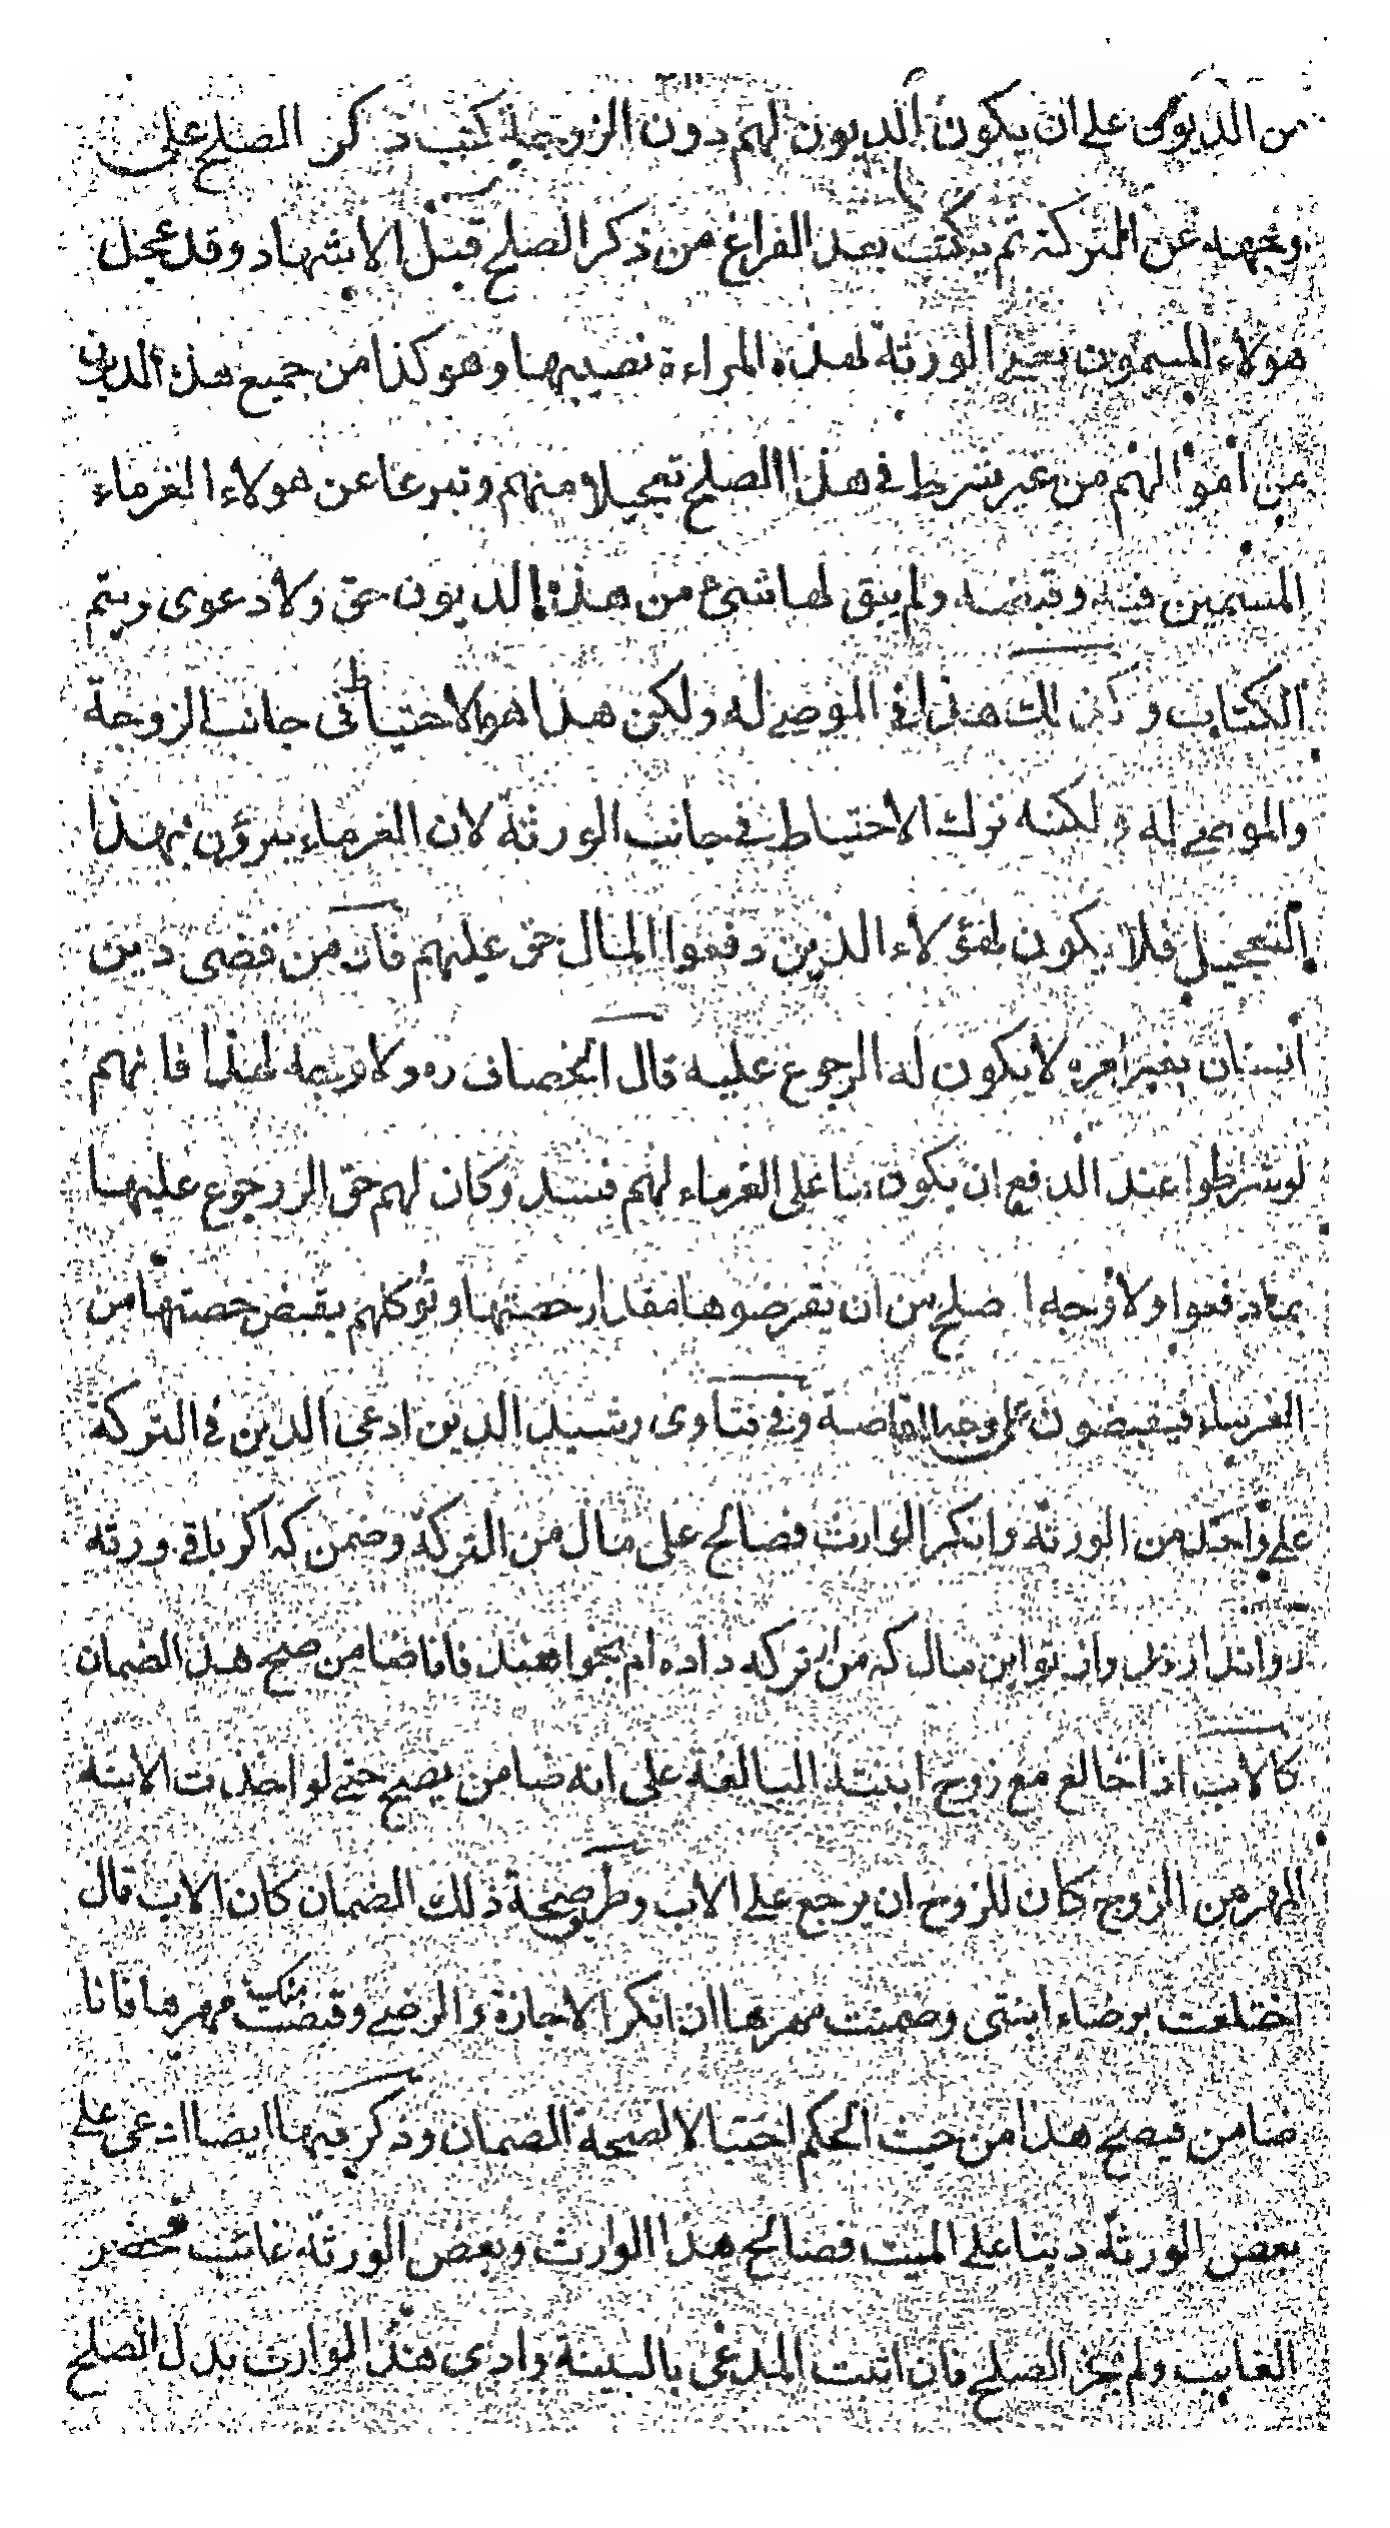 من الديون على ان يكون الديون لهم دون الزوجة كتب ذكر الصلح على
وجهه عن التركة ثم يكتب بعد الفراغ من ذكر الصلح قبل الاشهاد وقد عجل
هولاء المسمون بعد الورثة لهذه المراءة نصيبها وهو كذا من جميع هذه الديون
من اموالهم من غير شرط في هذا الصلح تعجيلا ومنهم وتبرعا عن هولاء الغرماء
المسمين فيه وقبضه ولم يبق لها شئ من هذه الديون حق ولا دعوى ويتم
الكتاب وكذلك هذا في الموصى له ولكن هذا هو الاحتياط فى جانب الزوجة
والموصى له ولكنه ترك الاحتياط فى جانب الورثة لان الغرماء يبرؤن بهذا
التعجيل فلا يكون لهؤلاء الذين دفعوا المال حق عليهم فان من قضى دين
انسان بغير امره لا يكون له الرجوع عليه قال الخصاف ره ولا وجه لهذا فانهم
لو شرطوا عند الدفع ان يكون بنا على الغرماء لهم فسد وكان لهم حق الرجوع عليها
بما دفعوا ولا وجه اصلح من ان يقرضوها مقدار حصتها وتوكلهم بقبض حصتها من
الغرماء فيقبضون على وجه المقاصة وفي فتاوى رشيد الدين ادعى الدين في التركة
على واحد من الورثة وانكر الوارث فصالح على مال من التركة وضمن كه اكر باقى ورثه
روا ندارند واز تو اين مال كه من از تركه داده ام بخواهند فانا ضامن صح هذا الضمان
كالاب اذا خالع مع زوج ابنته البالغة على انه ضامن يصح حتى لو اخذت الابنة
المهر من الزوج كان للزوج ان يرجع على الاب وطر صحة ذلك الضمان كان الاب قال
اختلعت برضاء ابنتى وضمنت مهرها ان انكر الاجازة والرضى وقبضت منك مهرها فانا
ضامن فيصح هذا من حيث الحكم احتيالا لصحة الضمان وذكر فيها ايضا ادعى على
بعض الورثة دينا على الميت فصالح هذا الوارث وبعض الورثة غائب فحضر
الغايب ولم يجز الصلح فان اثبت المدعى بالبينة وادى هذا الوارث بدل الصلح